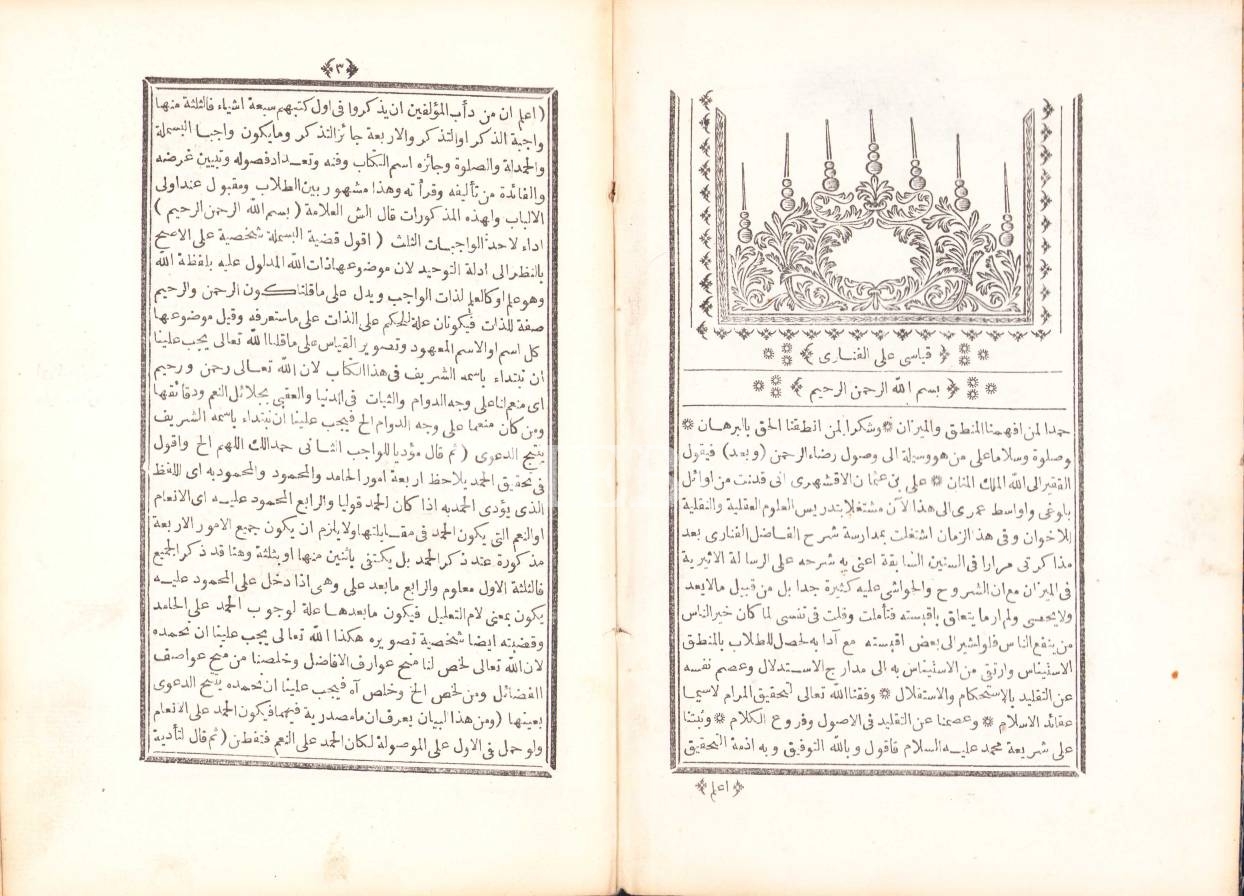 ﴿ قياسى على الفنارى ﴾
﴿ بسم الله الرحمن الرحيم ﴾
حمدا لمن افهمنا المنطق والميزان * وشكرا لمن انطقنا الحق بالبرهان *
وصلوة وسلاما على من هو وسيلة الى وصول رضاء الرحمن (وبعد) فيقول
الفقير الى الله الملك المنان * على بن عثمان الاقشهرى انى قد نت من اوائل
بلوغى واواسط عمرى الى هذا الآن مشتغلا بتدريس العلوم العقلية والنقلية
للاخوان وفى هذ الزمان اشتغلت بمدارسة شرح الفاضل الفنارى بعد
مذاكرتى مرارا فى السنين السابقة اعنى به شرحه على الرسالة الاثيرية
فى الميزان مع ان الشروح والحواشى عليه كثيرة جدا بل من قبيل ما لا يعد
ولا يحصى ولم ار ما يتعلق باقيسته فتأملت وقلت فى نفسى لما كان خير الناس
من ينفع الناس فلو اشير الى بعض اقيسته مع آدابه لحصل للطلاب بالمنطق
الاستيناس وارتقى من الاستيناس به الى مدارج الاستدلال وعصم نفسه
عن التقليد بالاستحكام والاستقلال * وفقنا الله تعالى لتحقيق المرام لاسيما
عقائد الاسلام * وعصمنا عن التقليد فى الاصول وفروع الكلام * وثبتنا
على شريعة محمد عليه السلام فاقول وبالله التوفيق وبه اذمة التحقيق
﴿ اعلم ﴾
﴿ ٣ ﴾
(اعلم ان من دأب المؤلفين ان يذكروا فى اول كتبهم سبعة اشياء فالثلثة منها
واجبة الذكر او التذكر والاربعة جائز التذكر وما يكون واجبا البسملة
والحمدلة والصلوة وجائزه اسم الكتاب وفنه وتعداد فصوله وتبيين غرضه
والفائدة من تأليفه وقرأته وهذا مشهور بين الطلاب ومقبول عند اولى
الالباب ولهذه المذكورات قال الش العلامة (بسم الله الرحمن الرحيم)
اداء لاحد الواجبات الثلث (اقول قضية البسملة شخصية على الاصح
بالنظر الى ادلة التوحيد لان موضوعها ذات الله المدلول عليه بلفظة الله
وهو علم او كالعلم لذات الواجب ويدل على ما قلنا كون الرحمن والرحيم
صفة للذات فيكونان علة للحكم على الذات على ما ستعرفه وقيل موضوعها
كل اسم او الاسم المعهود وتصوير القياس على ما قلنا الله تعالى يجب علينا
ان نبتداء باسمه الشريف فى هذا الكتاب لان الله تعالى رحمن ورحيم
اى منعم لنا على وجه الدوام والثبات فى الدنيا والعقبى بجلائل النعم ودقائقها
ومن كان منعما على وجه الدوام الخ فيجب علينا ان نبتداء باسمه الشريف
ينتج الدعوى (ثم قال مؤديا للواجب الثانى حمدا لك اللهم الخ واقول
فى تحقيق الحمد يلاحظ اربعة امور الحامد والمحمود والمحمود به اى اللفظ
الذى يؤدى الحمد به اذا كان الحمد قوليا والرابع المحمود عليه اى الانعام
او النعم التى يكون الحمد فى مقابلتها ولا يلزم ان يكون جميع الامور الاربعة
مذكورة عند ذكر الحمد بل يكتفى باثنين منها او بثلثة وهنا قد ذكر الجميع
فالثلثة الاول معلوم والرابع ما بعد على وهى اذا دخل على المحمود عليه
يكون بمعنى لام التعليل فيكون ما بعدها علة لوجوب الحمد على الحامد
وقضيته ايضا شخصية تصويره هكذا الله تعالى يجب علينا ان نحمده
لان الله تعالى لخص لنا منح عوارف الافاضل وخلصنا من محن عواصف
الفضائل ومن لخص الخ وخلص آه فيجب علينا ان نحمده ينتج الدعوى
بعينها (ومن هذا البيان يعرف ان ما مصدرية فيهما فيكون الحمد على الانعام
ولو حمل فى الاول على الموصولة لكان الحمد على النعم فتفطن (ثم قال لتأدية